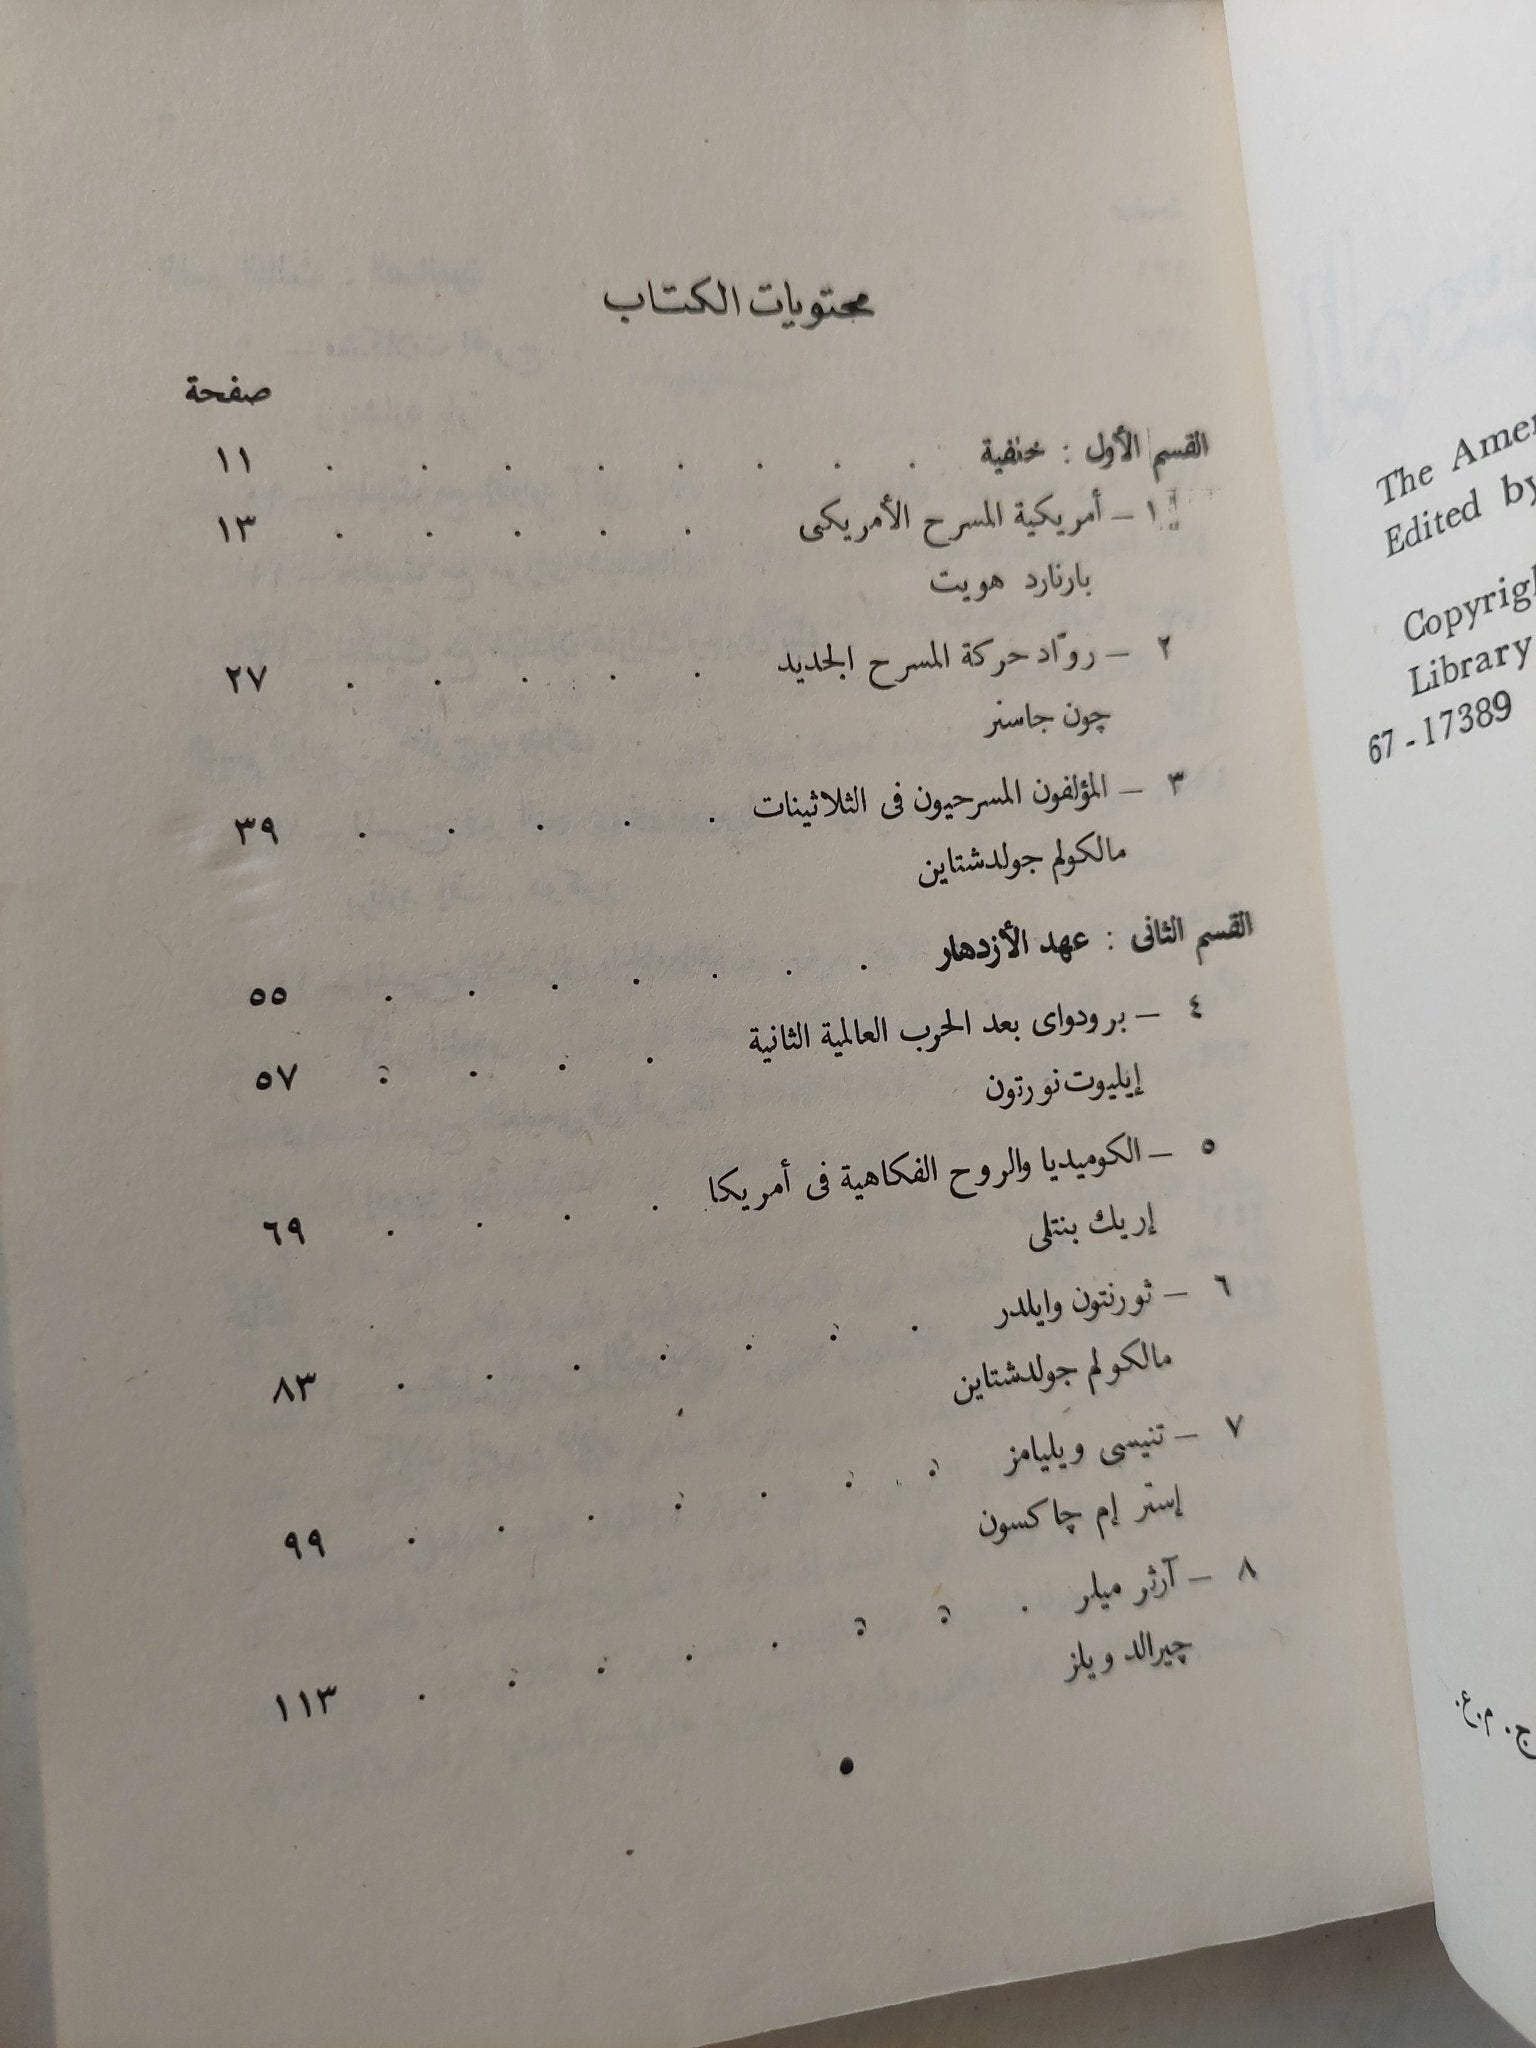 محتويات الكتاب
صفحة
القسم الأول : خلفية . . . . . . . . ١١
١ – أمريكية المسرح الأمريكى . . . . . ١٣
بارنارد هويت
٢ – روّاد حركة المسرح الجديد . . . . . ٢٧
چون جاسنر
٣ – المؤلفون المسرحيون فى الثلاثينات . . . . . ٣٩
مالكولم جولدشتاين
القسم الثانى : عهد الأزدهار . . . . . . . ٥٥
٤ – برودواى بعد الحرب العالمية الثانية . . . . ٥٧
إيليوت نورتون
٥ – الكوميديا والروح الفكاهية فى أمريكا . . . . ٦٩
إريك بنتلى
٦ – ثورنتون وايلدر . . . . . . . ٨٣
مالكولم جولدشتاين
٧ – تنيسى ويليامز . . . . . . . ٩٩
إستر إم چاكسون
٨ – آرثر ميلر . . . . . . . . ١١٣
چيرالد ويلز
The
Edited by
Library
67 - 17389